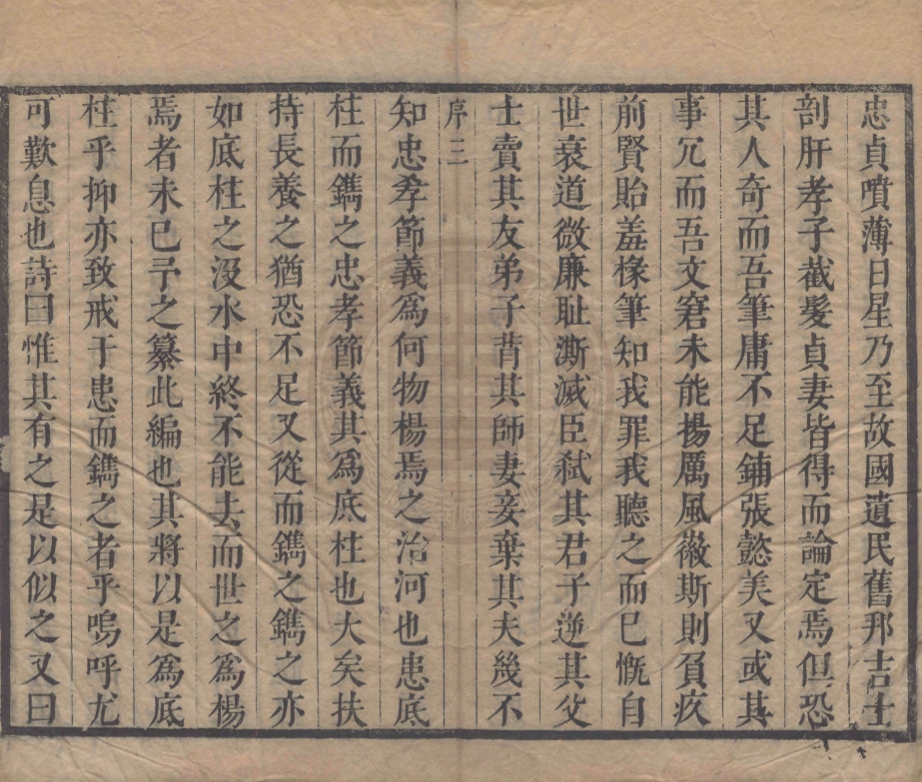 忠貞噴薄日星乃至故國遺民舊邦吉士
剖肝孝子截髮貞妻皆得而論定焉但恐
其人奇而吾筆庸不足鋪張懿美又或其
事冗而吾文窘未能揚厲風徽斯則負疚
前賢貽羞椽筆知我罪我聽之而已慨自
世衰道微廉恥澌滅臣弒其君子逆其父
士賣其友弟子背其師妻妾棄其夫幾不
序三
知忠孝節義爲何物楊焉之治河也患底
柱而鐫之忠孝節義其爲底柱也大矣扶
持長養之猶恐不足又從而鐫之鐫之亦
如底柱之沒水中終不能去而世之爲楊
焉者未已予之纂此編也其將以是爲底
柱乎抑亦致戒于患而鐫之者乎嗚呼尤
可歎息也詩曰惟其有之是以似之又曰